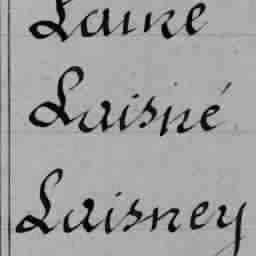 Laine
Laisné
Laisney